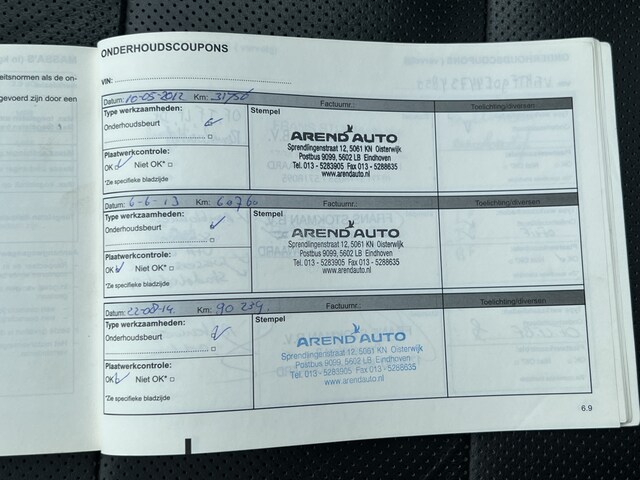 eitsnormen als de on-
gevoerd zijn door een
ONDERHOUDSCOUPONS
VIN:
Datum: 10-05-2012 Km: 31750 Factuurnr.: Toelichting/diversen
Type werkzaamheden: Stempel
Onderhoudsbeurt
AREND AUTO
Sprendlingenstraat 12, 5061 KN Oisterwijk
Postbus 9099, 5602 LB Eindhoven
Tel. 013 - 5283905 Fax 013 -5288635
www.arendauto.nl
Plaatwerkcontrole:
OK Niet OK*
*Zie specifieke bladzijde
Datum: 6-6-13 Km: 60760 Factuurnr.: Toelichting/diversen
Type werkzaamheden: Stempel
Onderhoudsbeurt
AREND AUTO
Sprendlingenstraat 12, 5061 KN Oisterwijk
Postbus 9099, 5602 LB Eindhoven
Tel. 013 - 5283905 Fax 013 -5288635
www.arendauto.nl
Plaatwerkcontrole:
OK Niet OK*
*Ze specifieke bladzijde
Datum: 22-08-14. Km: 90 234. Factuurnr.: Toelichting/diversen
Type werkzaamheden: Stempel
Onderhoudsbeurt
AREND AUTO
Sprendlingenstraat 12, 5061 KN Oisterwijk
Postbus 9099, 5602 LB Eindhoven
Tel. 013 - 5283905 Fax 013 -5288635
www.arendauto.nl
Plaatwerkcontrole:
OK Niet OK*
*Ze specifieke bladzijde
6.9